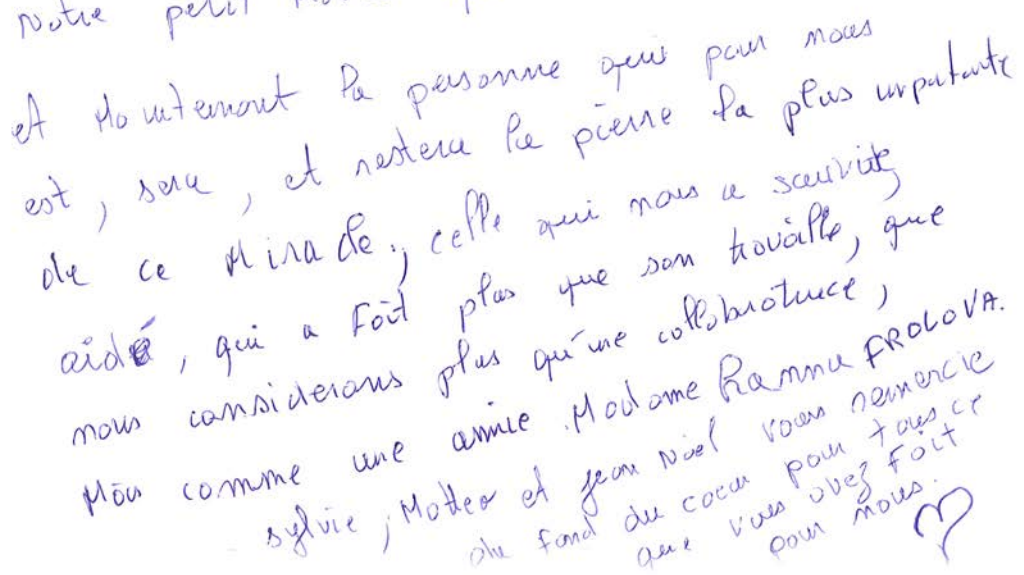 Notre petit
et Maintenant la personne qui pour nous
est, sera, et restera la pierre la plus importante
de ce Miracle, celle qui nous a
aidé, qui a Fait plus que son travaille, que
nous considerons plus qu'une collobratrice,
Mais comme une amie. Madame Ranna FROLOVA.
sylvie, Matteo et jean Noel vous remercie
du fond du coeur pour tous ce
que vous avez Fait
pour nous.